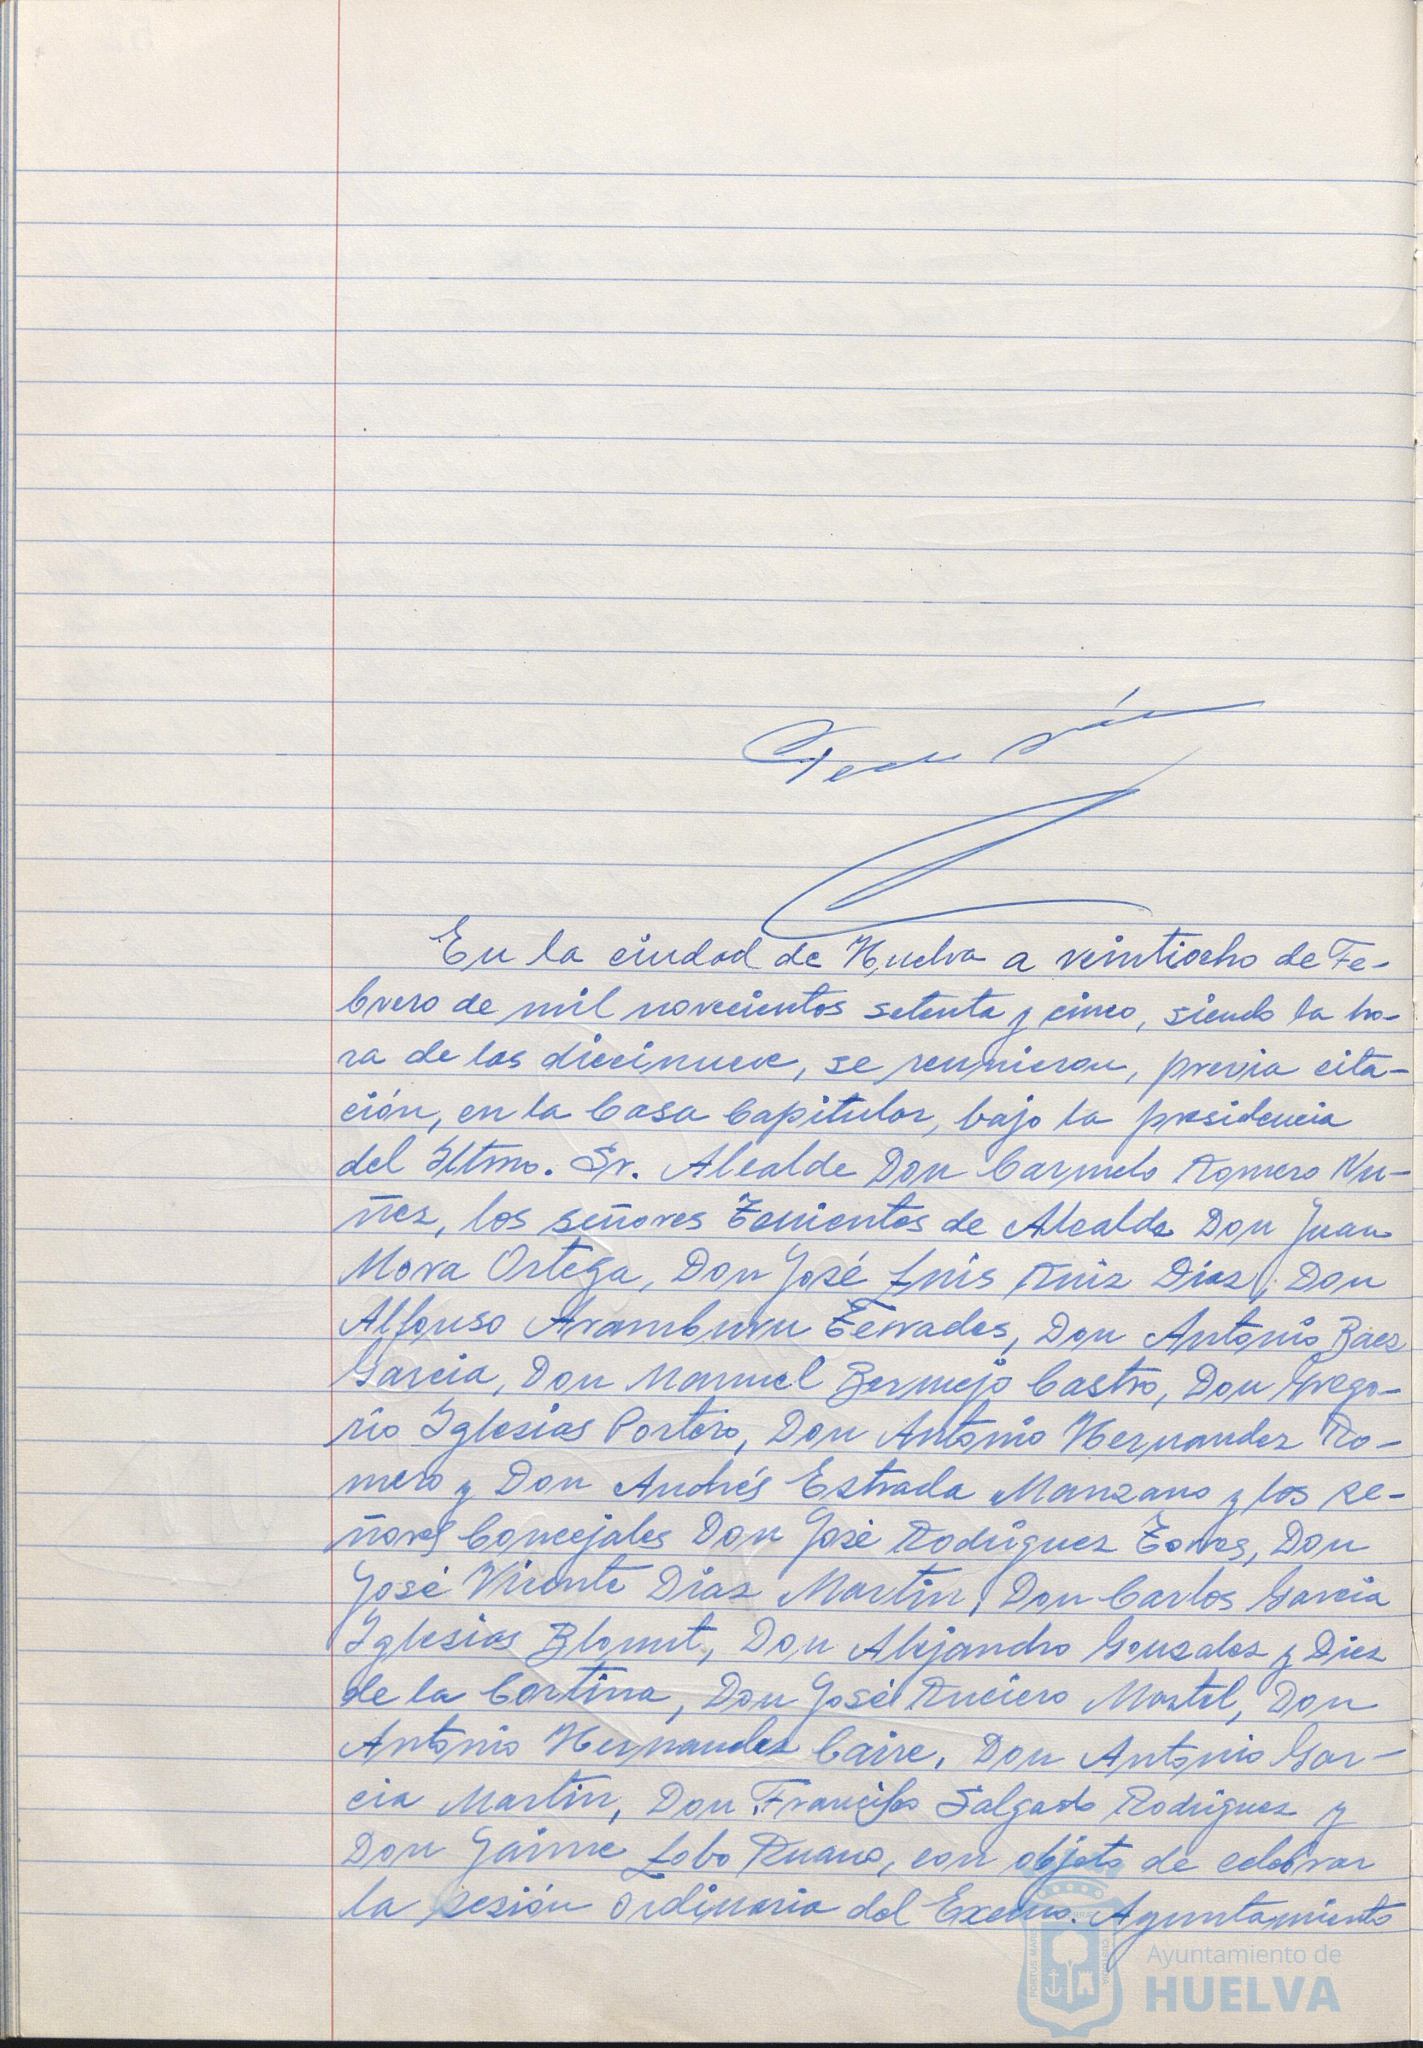 En la ciudad de Huelva a veintiocho de Fe-
brero de mil novecientos setenta y cinco, siendo la ho-
ra de las diecinueve, se reunieron, previa cita-
ción, en la Casa Capitular, bajo la presidencia
del Iltmo. Sr. Alcalde Don Carmelo Romero Nu-
ñez, los señores Tenientes de Alcalde Don Juan
Mora Ortega, Don José Luis Ruiz Diaz, Don
Alfonso Aramburu Terrades, Don Antonio Baez
Garcia, Don Manuel Bermejo Castro, Don Grego-
rio Iglesias Portero, Don Antonio Hernandez Ro-
mero y Don Andrés Estrada Manzano y los se-
ñores Concejales Don José Rodriguez Torres, Don
José Vicente Diaz Martin, Don Carlos Garcia
Iglesias Blount, Don Alejandro Gonzalez y Diez
de la Cortina, Don José Ruciero Martel, Don
Antonio Hernandez Caire, Don Antonio Gar-
cia Martin, Don Francisco Salgado Rodriguez y
Don Jaime Lobo Ruano, con objeto de celebrar
la sesión ordinaria del Excmo. Ayuntamiento
Ayuntamiento de
HUELVA